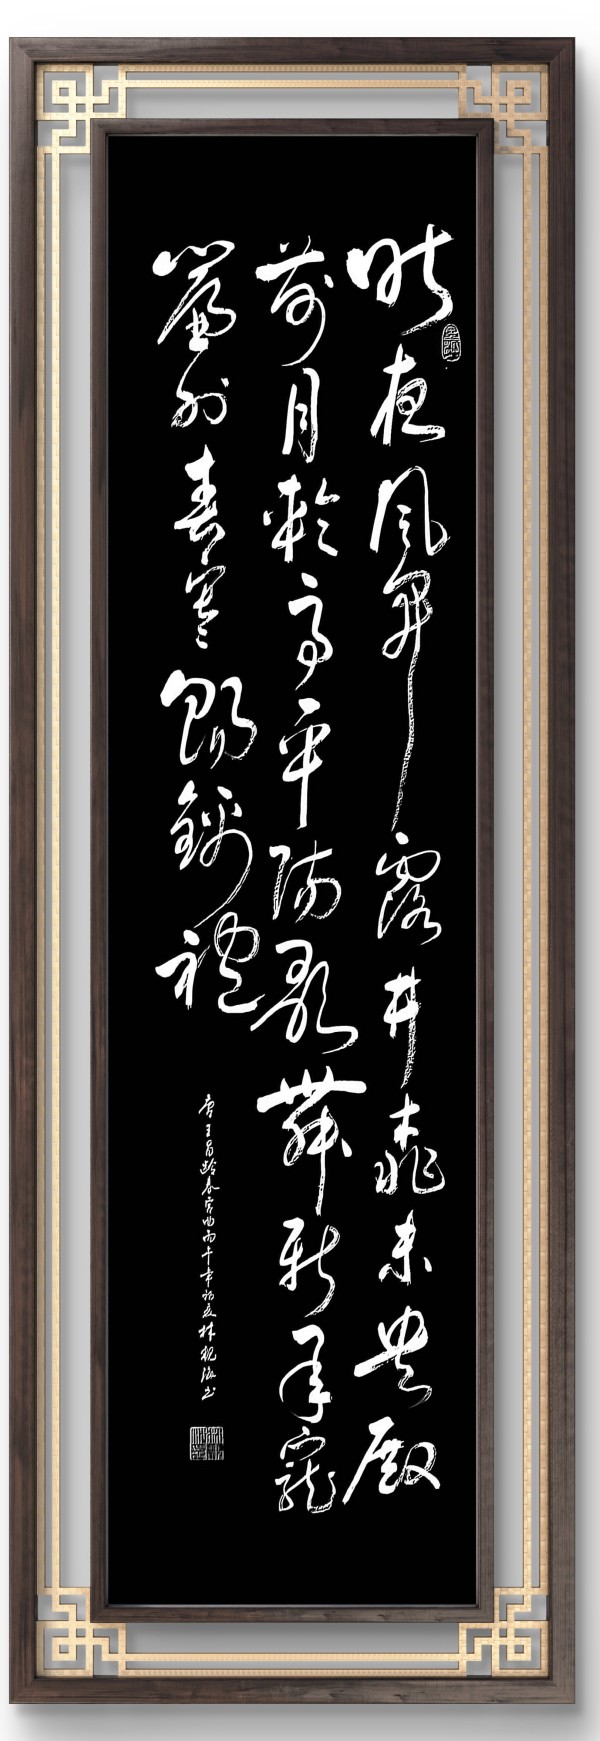 昨夜風開露井桃未央殿
前月輪高平陽歌舞新承寵
簾外春寒賜錦袍
唐王昌齡春宮曲丙午年初夏林